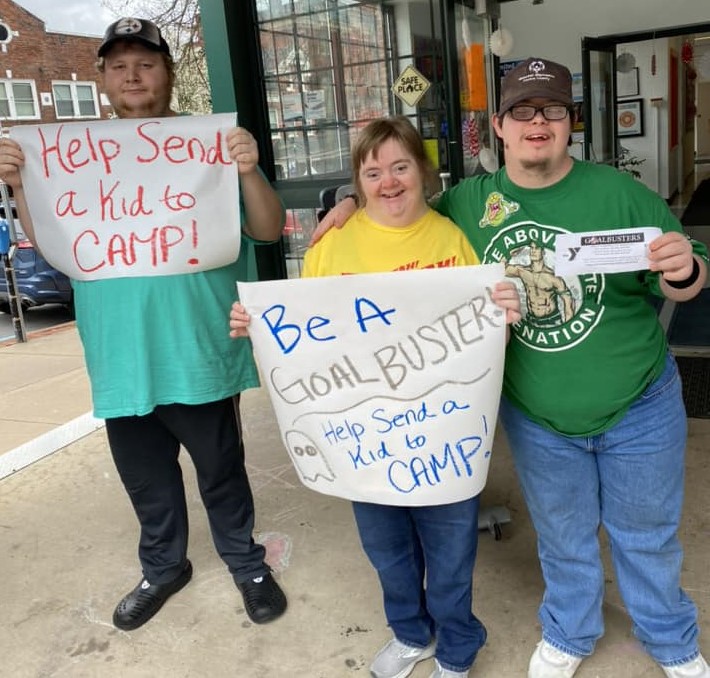 Help Send
a Kid to
CAMP!
SAFE
PLACE
Be A
GOAL BUSTER!
Help Send a
Kid to
CAMP!
GOALBUSTERS
Y
E ABOV
ENATION